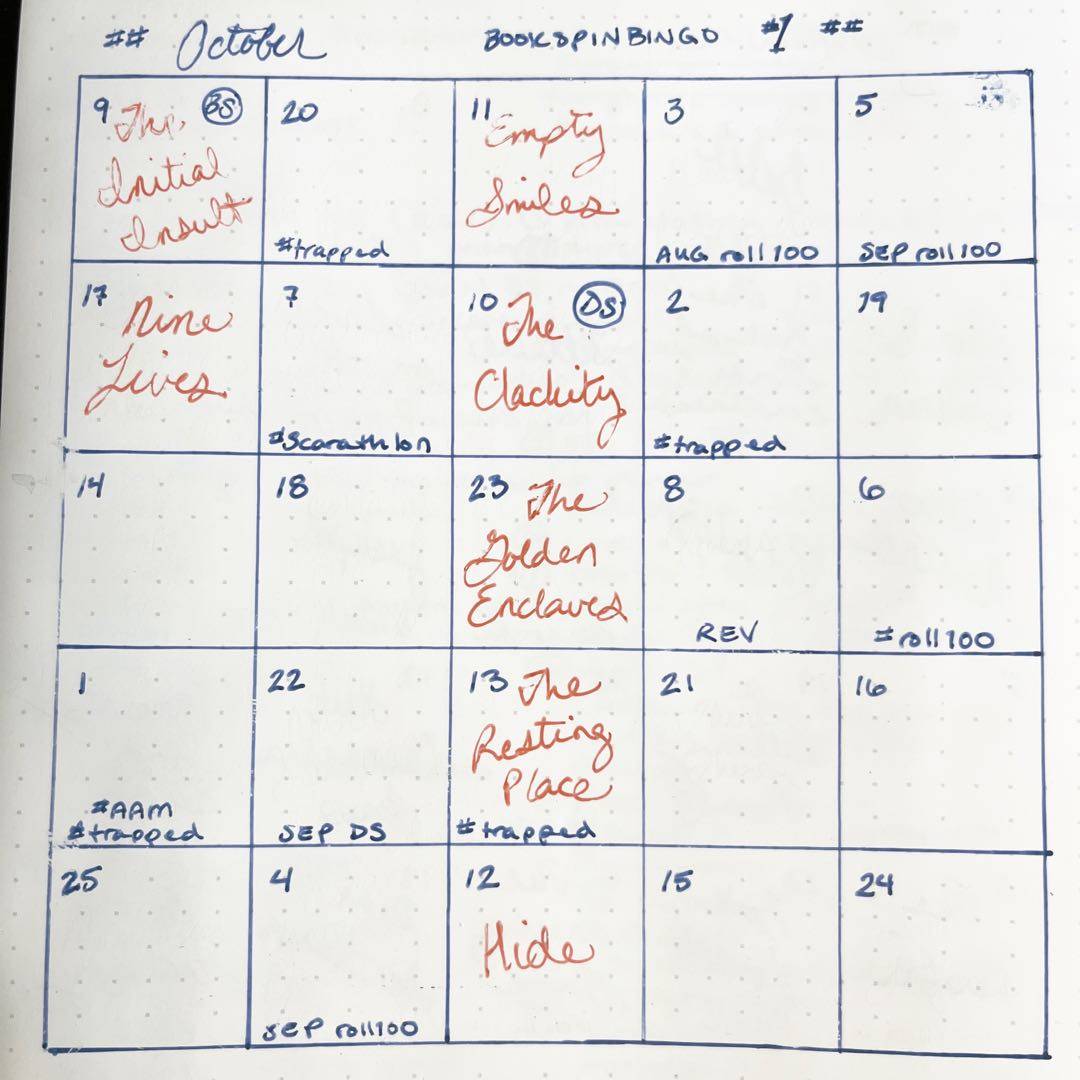 ## October BOOKSPINBINGO #1 ##
9 BS
The
Initial
Insult
20
#trapped
11
Empty
Smiles
3
AUG roll100
5
SEP roll100
17
Nine
Lives
7
#Scarathlon
10 The DS
Clackity
2
#trapped
19
14
18
23 The
Golden
Enclaves
8
REV
6
#roll100
1
#AAM
#trapped
22
SEP DS
13 The
Resting
Place
#trapped
21
16
25
4
SEP roll100
12
Hide
15
24